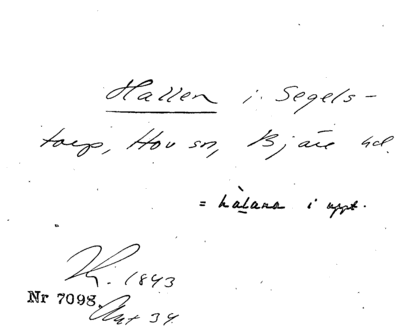 Hallen i Segels-
torp, Hov sn, Bjäre hd.
= hàlana i uppt.
1843
Nr 7098. Ant 34